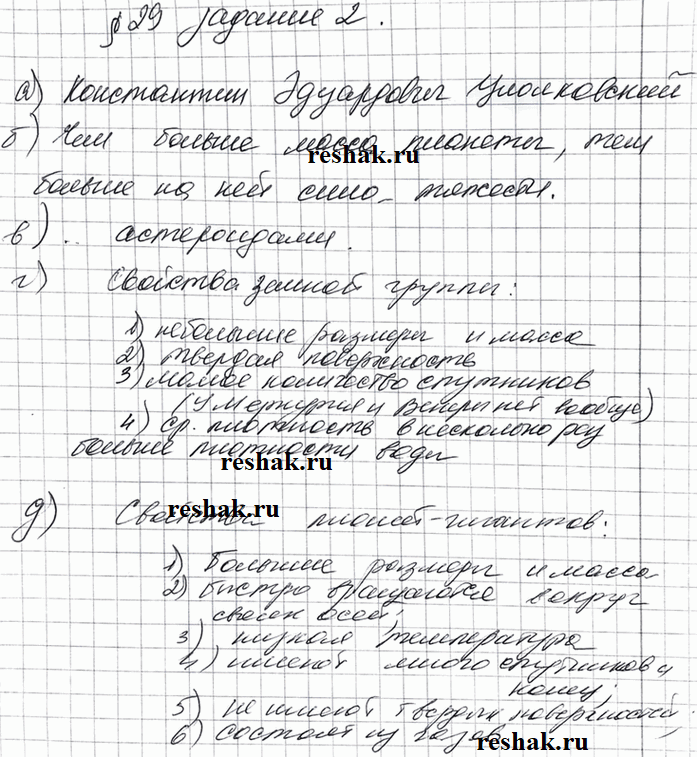 § 29 задание 2.
а) Константин Эдуардович Циолковский
б) Чем больше масса планеты, тем
reshak.ru
больше на ней сила тяжести.
в) . астероидами.
г) Свойства земной группы:
1) небольшие размеры и масса
2) твердая поверхность
3) малое количество спутников
(У Меркурия и Венеры нет вообще)
4) ср. плотность в несколько раз
больше плотности воды
reshak.ru
reshak.ru
д) Свойства планет-гигантов:
1) Большие размеры и масса
2) быстро вращаются вокруг
своей осей;
3) низкая температура
4) имеют много спутников и
колец;
5) не имеют твердых поверхностей;
6) состоят из газов
reshak.ru